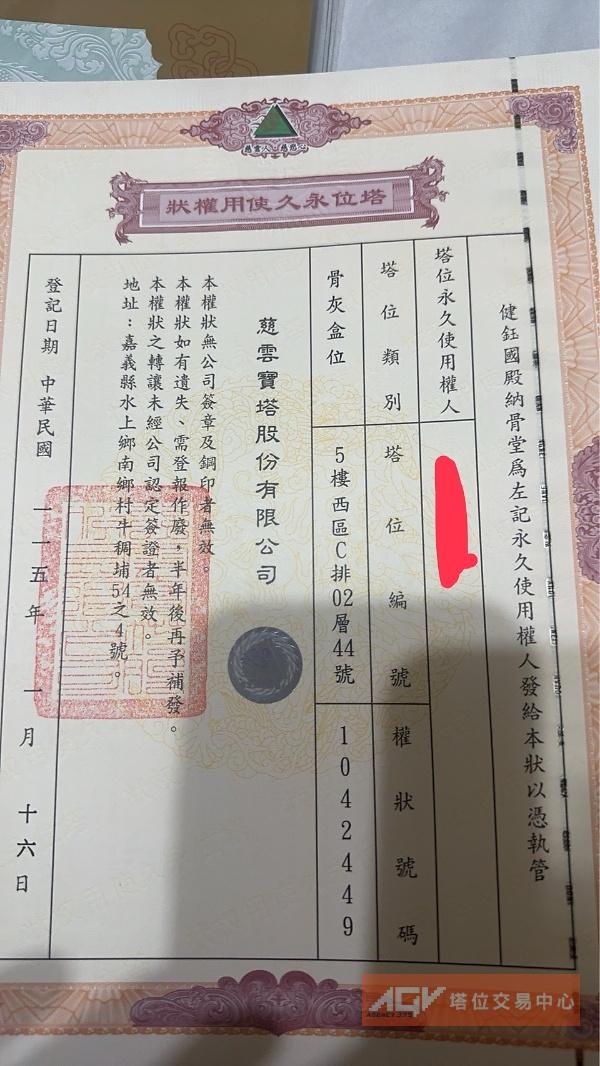 慈雲人‧慈悲心
塔位永久使用權狀
健鈺國殿納骨堂為左記永久使用權人發給本狀以憑執管
塔位永久使用權人
塔位類別
塔位編號
權狀號碼
骨灰盒位
5樓西區C排02層44號
1042449
慈雲寶塔股份有限公司
本權狀無公司簽章及鋼印者無效。
本權狀如有遺失、需登報作廢，半年後再予補發。
本權狀之轉讓未經公司認定簽證者無效。
地址：嘉義縣水上鄉南鄉村牛稠埔54之4號。
登記日期 中華民國 一一五年 一月 十六日
AGV 塔位交易中心